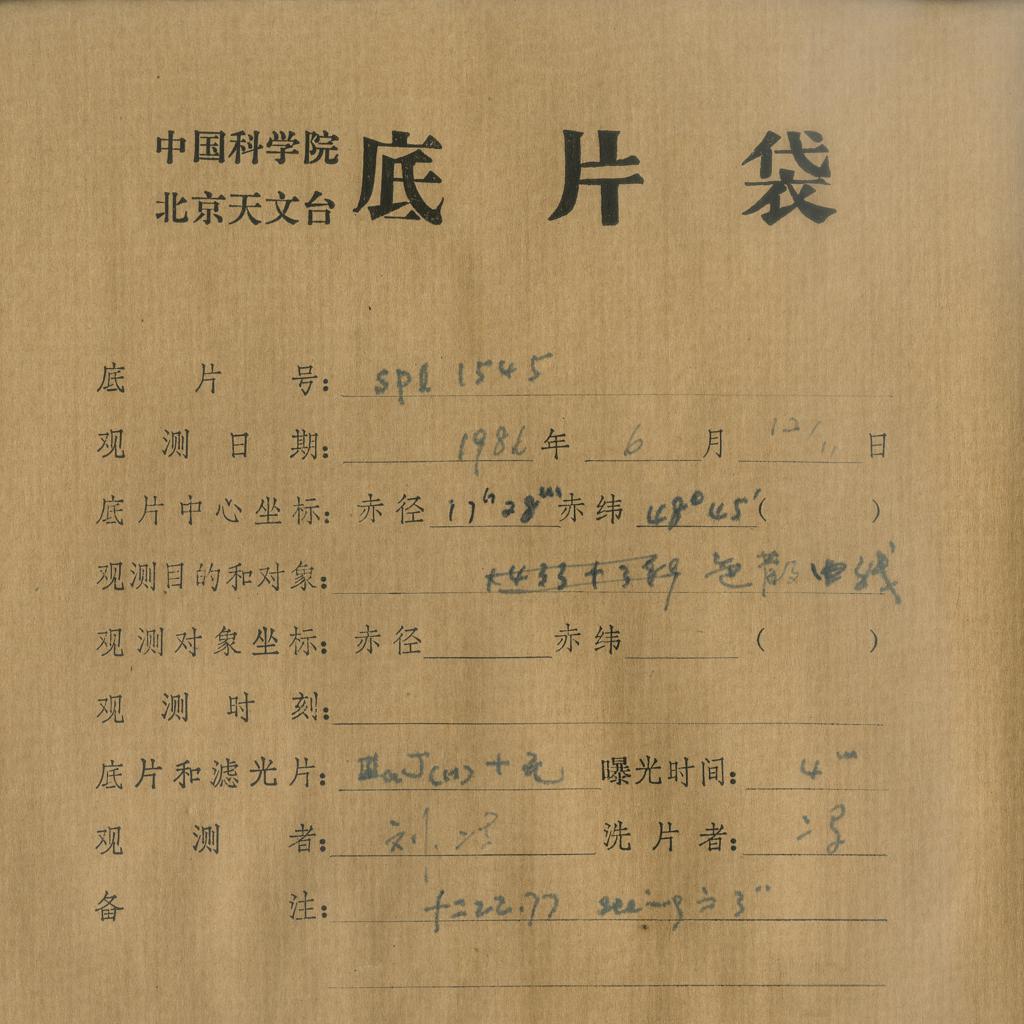 中国科学院
北京天文台
底片袋
底片号: spl 1545
观测日期: 1986年 6月 12/11日
底片中心坐标: 赤径 17ʰ28ᵐ 赤纬 48°45′( )
观测目的和对象: 色散曲线
观测对象坐标: 赤径 赤纬 ( )
观测时刻:
底片和滤光片: ⅢaJ(H)+无 曝光时间: 4ᵐ
观测者: 刘. 冯 洗片者: 冯
备注: f=22.77 seeing 3″